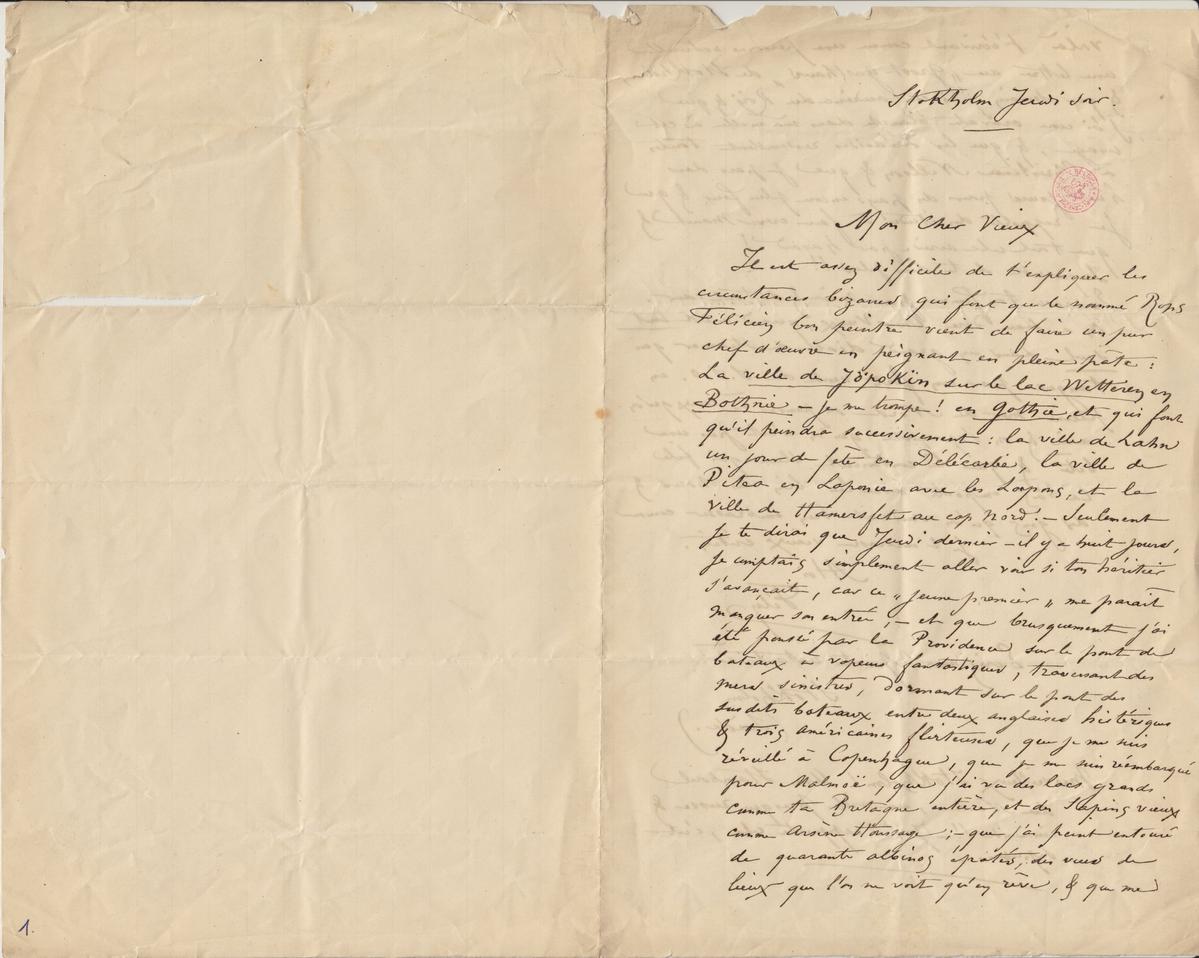 Stokholm Jeudi soir.
Mon Cher Vieux
Il est assez difficile de t'expliquer les
circonstances bizares qui font que le nommé Rops
Félicien bon peintre vient de faire un pur
chef d'œuvre en peignant en pleine pâte :
La ville de Jöpokin sur le lac Wetteren en
Bothnie – je me trompe ! en Gothie, et qui font
qu'il peindra successivement : la ville de Lahn
un jour de fête en Délécarlie, la ville de
Pitea en Laponie avec les Lapons, et la
ville de Hamersfet au cap Nord ! – Seulement
je te dirai que Jeudi dernier – il y a huit jours,
je comptais simplement aller voir si ton héritier
s'avançait, car ce „ jeune premier „ me paraît
manquer son entrée, – et que brusquement j'ai
été poussé par la Providence sur le pont de
bateaux à vapeurs fantastiques, traversant des
mers sinistres, dormant sur le pont des
susdits bateaux entre deux anglaises histériques
& trois américaines flirteuses, que je me suis
réveillé à Copenhague, que je me suis réembarqué
pour Malmoë, que j'ai vu des lacs grands
comme ta Bretagne entière, et des Sapins vieux
comme Arsène Houssaye ; – que j'ai peint entouré
de quarante albinos épatés, des vues de
lieux que l'on ne voit qu'en rêve, & que mes
1.